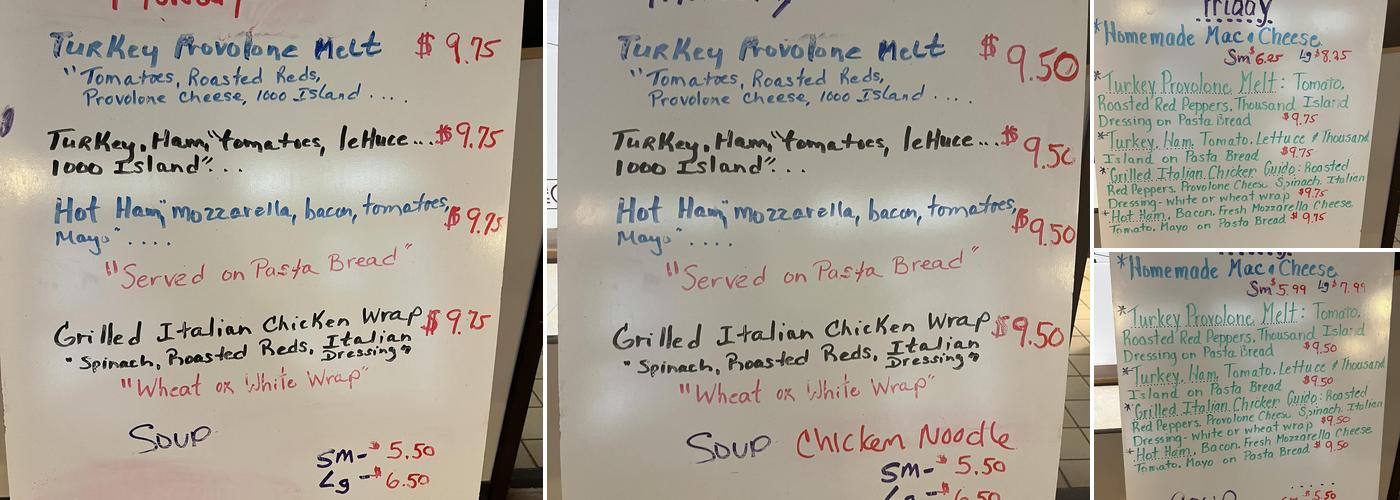 TurKey Provolone Melt $ 9.75
"Tomatoes, Roasted Reds,
Provolone Cheese, 1000 Island ....
TurKey, Ham, "tomatoes, lettuce... $9.75
1000 Island"...
Hot Ham, "mozzarella, bacon, tomatoes, $9.75
Mayo" ....
"Served on Pasta Bread"
Grilled Italian ChicKen Wrap $9.75
"Spinach, Roasted Reds, Italian
Dressing"
"Wheat or White Wrap"
Soup
Sm- $5.50
Lg - $6.50
TurKey Provolone Melt $ 9.50
"Tomatoes, Roasted Reds,
Provolone Cheese, 1000 Island ....
TurKey, Ham, "tomatoes, lettuce... $9.50
1000 Island"...
Hot Ham, "mozzarella, bacon, tomatoes, $9.50
Mayo" ....
"Served on Pasta Bread"
Grilled Italian ChicKen Wrap $9.50
"Spinach, Roasted Reds, Italian
Dressing"
"Wheat or White Wrap"
Soup Chicken Noodle
Sm- $5.50
Lg - $6.50
Friday
*Homemade Mac & Cheese
Sm $6.25 Lg $8.25
*Turkey Provolone Melt: Tomato,
Roasted Red Peppers, Thousand Island
Dressing on Pasta Bread $9.75
*Turkey, Ham, Tomato, Lettuce & Thousand
Island on Pasta Bread $9.75
*Grilled Italian Chicken Guido: Roasted
Red Peppers, Provolone Cheese, Spinach, Italian
Dressing- white or wheat wrap $9.75
*Hot Ham, Bacon, Fresh Mozzarella Cheese
Tomato, Mayo on Pasta Bread $9.75
*Homemade Mac & Cheese
Sm $5.99 Lg $7.99
*Turkey Provolone Melt: Tomato,
Roasted Red Peppers, Thousand Island
Dressing on Pasta Bread $9.50
*Turkey, Ham, Tomato, Lettuce & Thousand
Island on Pasta Bread $9.50
*Grilled Italian Chicken Guido: Roasted
Red Peppers, Provolone Cheese, Spinach, Italian
Dressing- white or wheat wrap $9.50
*Hot Ham, Bacon, Fresh Mozzarella Cheese
Tomato, Mayo on Pasta Bread $9.50